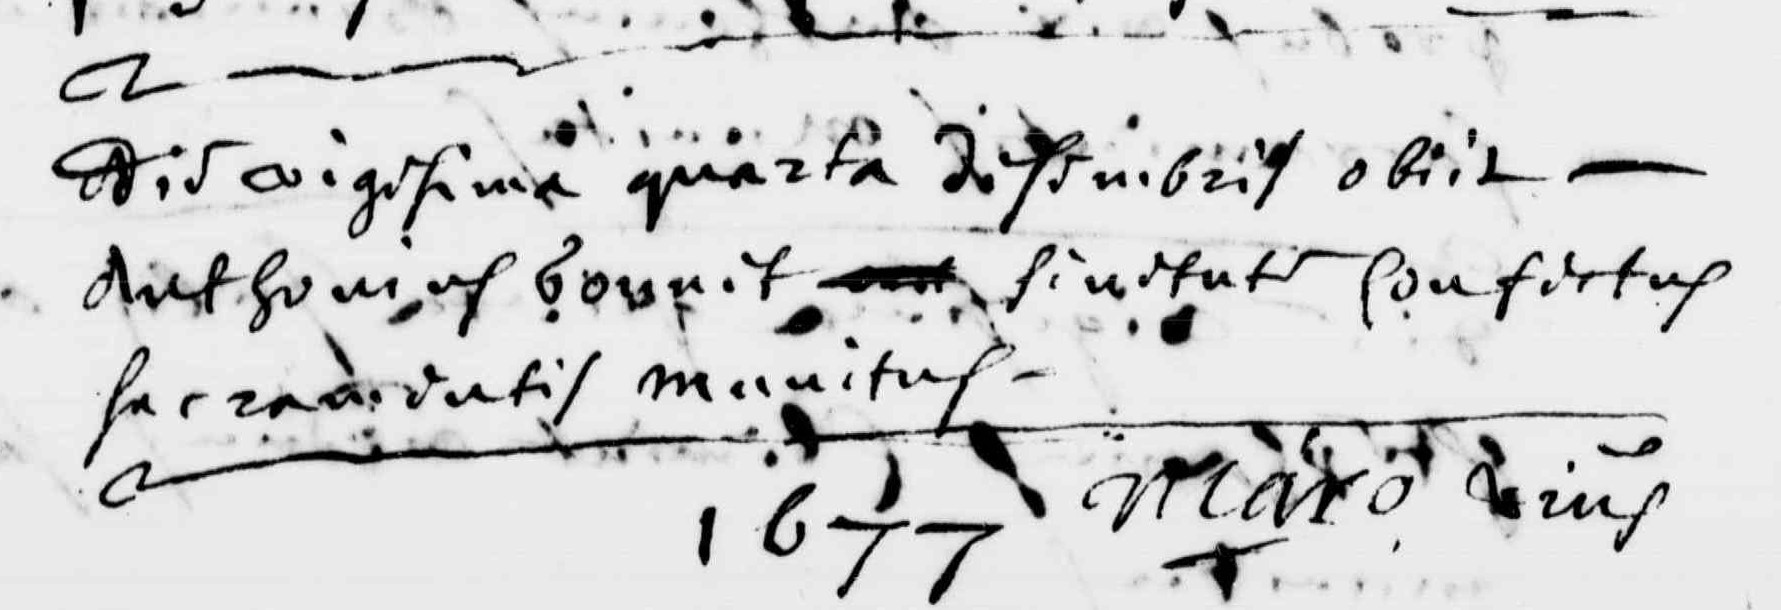 Die vigesima quarta desembris obiit
Anthonius bonnet senetute confectus
sacramentis munitus
1677 Maro vius